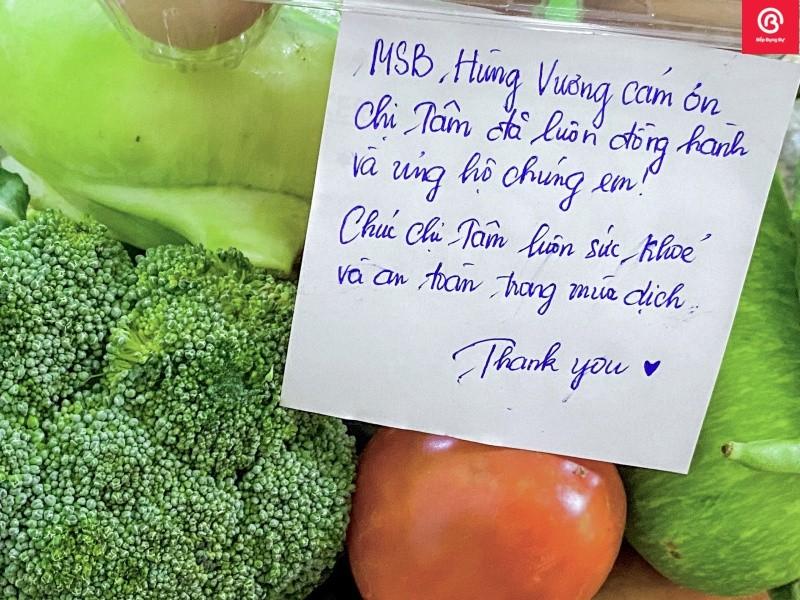 Bếp Đụng Bự
MSB Hùng Vương cám ơn
chị Tâm đã luôn đồng hành
và ủng hộ chúng em!
Chúc chị Tâm luôn sức khoẻ
và an toàn trong mùa dịch
Thank you ♥